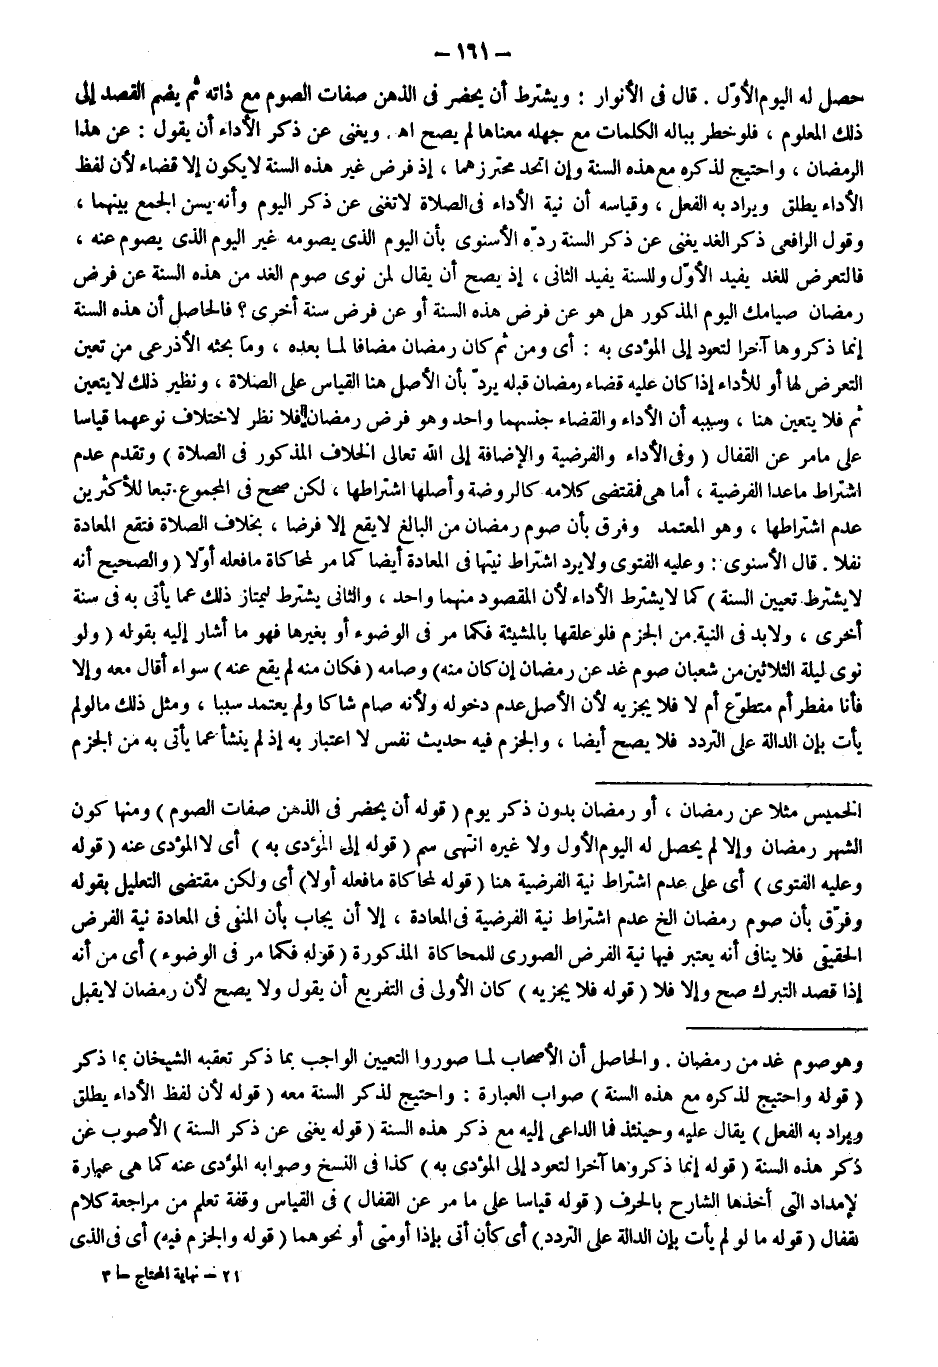 – ١٦١ –
حصل له اليوم الأوّل . قال فى الأنوار : ويشترط أن يحضر فى الذهن صفات الصوم مع ذاته ثم يضم القصد إلى
ذلك المعلوم ، فلو خطر بباله الكلمات مع جهله معناها لم يصح اه . ويغنى عن ذكر الأداء أن يقول : عن هذا
الرمضان ، واحتيج لذكره مع هذه السنة وإن اتحد محترزهما ، إذ فرض غير هذه السنة لايكون إلا قضاء لأن لفظ
الأداء يطلق ويراد به الفعل ، وقياسه أن نية الأداء فى الصلاة لاتغنى عن ذكر اليوم وأنه يسن الجمع بينهما ،
وقول الرافعى ذكر الغد يغنى عن ذكر السنة ردّه الأسنوى بأن اليوم الذى يصومه غير اليوم الذى يصوم عنه ،
فالتعرض للغد يفيد الأوّل وللسنة يفيد الثانى ، إذ يصح أن يقال لمن نوى صوم الغد من هذه السنة عن فرض
رمضان صيامك اليوم المذكور هل هو عن فرض هذه السنة أو عن فرض سنة أخرى ؟ فالحاصل أن هذه السنة
إنما ذكروها آخرا لتعود إلى المؤدى به : أى ومن ثم كان رمضان مضافا لما بعده ، وما بحثه الأذرعى من تعين
التعرض لها أو للأداء إذا كان عليه قضاء رمضان قبله يردّ بأن الأصل هنا القياس على الصلاة ، ونظير ذلك لايتعين
ثم فلا يتعين هنا ، وسببه أن الأداء والقضاء جنسهما واحد وهو فرض رمضان فلا نظر لاختلاف نوعهما قياسا
على مامر عن القفال ( وفى الأداء والفرضية والإضافة إلى الله تعالى الخلاف المذكور فى الصلاة ) وتقدم عدم
اشتراط ماعدا الفرضية ، أما هى فمقتضى كلامه كالروضة وأصلها اشتراطها ، لكن صحح فى المجموع تبعا للأكثرين
عدم اشتراطها ، وهو المعتمد وفرق بأن صوم رمضان من البالغ لايقع إلا فرضا ، بخلاف الصلاة فتقع المعادة
نفلا . قال الأسنوى : وعليه الفتوى ولايرد اشتراط نيتها فى المعادة أيضا كما مر لمحاكاة مافعله أوّلا ( والصحيح أنه
لايشترط تعيين السنة ) كما لايشترط الأداء لأن المقصود منهما واحد ، والثانى يشترط ليمتاز ذلك عما يأتى به فى سنة
أخرى ، ولابد فى النية من الجزم فلو علقها بالمشيئة فكما مر فى الوضوء أو بغيرها فهو ما أشار إليه بقوله ( ولو
نوى ليلة الثلاثين من شعبان صوم غد عن رمضان إن كان منه) وصامه ( فكان منه لم يقع عنه ) سواء أقال معه وإلا
فأنا مفطر أم متطوّع أم لا فلا يجزيه لأن الأصل عدم دخوله ولأنه صام شاكا ولم يعتمد سببا ، ومثل ذلك مالولم
يأت بإن الدالة على التردد فلا يصح أيضا ، والجزم فيه حديث نفس لا اعتبار به إذ لم ينشأ عما يأتى به من الجزم
الخميس مثلا عن رمضان ، أو رمضان بدون ذكر يوم ( قوله أن يحضر فى الذهن صفات الصوم ) ومنها كون
الشهر رمضان وإلا لم يحصل له اليوم الأول ولا غيره انتهى سم ( قوله إلى المؤدى به ) أى لاالمؤدى عنه ( قوله
وعليه الفتوى ) أى على عدم اشتراط نية الفرضية هنا ( قوله لمحاكاة مافعله أولا) أى ولكن مقتضى التعليل بقوله
وفرّق بأن صوم رمضان الخ عدم اشتراط نية الفرضية فى المعادة ، إلا أن يجاب بأن المنفى فى المعادة نية الفرض
الحقيقى فلا ينافى أنه يعتبر فيها نية الفرض الصورى للمحاكاة المذكورة ( قوله فكما مر فى الوضوء ) أى من أنه
إذا قصد التبرك صح وإلا فلا ( قوله فلا يجزيه ) كان الأولى فى التفريع أن يقول ولا يصح لأن رمضان لايقبل
وهو صوم غد من رمضان . والحاصل أن الأصحاب لما صوروا التعيين الواجب بما ذكر تعقبه الشيخان بما ذكر
( قوله واحتيج لذكره مع هذه السنة ) صواب العبارة : واحتيج لذكر السنة معه ( قوله لأن لفظ الأداء يطلق
ويراد به الفعل ) يقال عليه وحينئذ فما الداعى إليه مع ذكر هذه السنة ( قوله يغنى عن ذكر السنة ) الأصوب عن
ذكر هذه السنة ( قوله إنما ذكروها آخرا لتعود إلى المؤدى به ) كذا فى النسخ وصوابه المؤدى عنه كما هى عبارة
لإمداد التى أخذها الشارح بالحرف ( قوله قياسا على ما مر عن القفال ) فى القياس وقفة تعلم من مراجعة كلام
لقفال ( قوله ما لو لم يأت بإن الدالة على التردد ) أى كأن أتى بإذا أو متى أو نحوهما ( قوله والجزم فيه ) أى فى الذى
٢١ – نهاية المحتاج – ٣